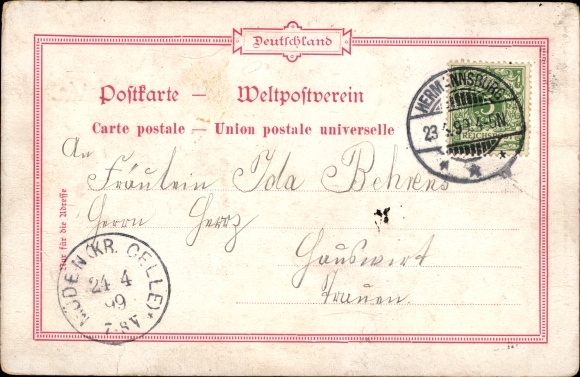 Deutschland
Postkarte — Weltpostverein
Carte postale — Union postale universelle
HERMANNSBURG
23 4 99
5
REICHSPOST
An
Fräulein Ida Behrens
Herrn Herrz
Hauswirt
Trauen.
Nur für die Adresse
MÜDEN (KR. CELLE)
24 4
99
7-8V